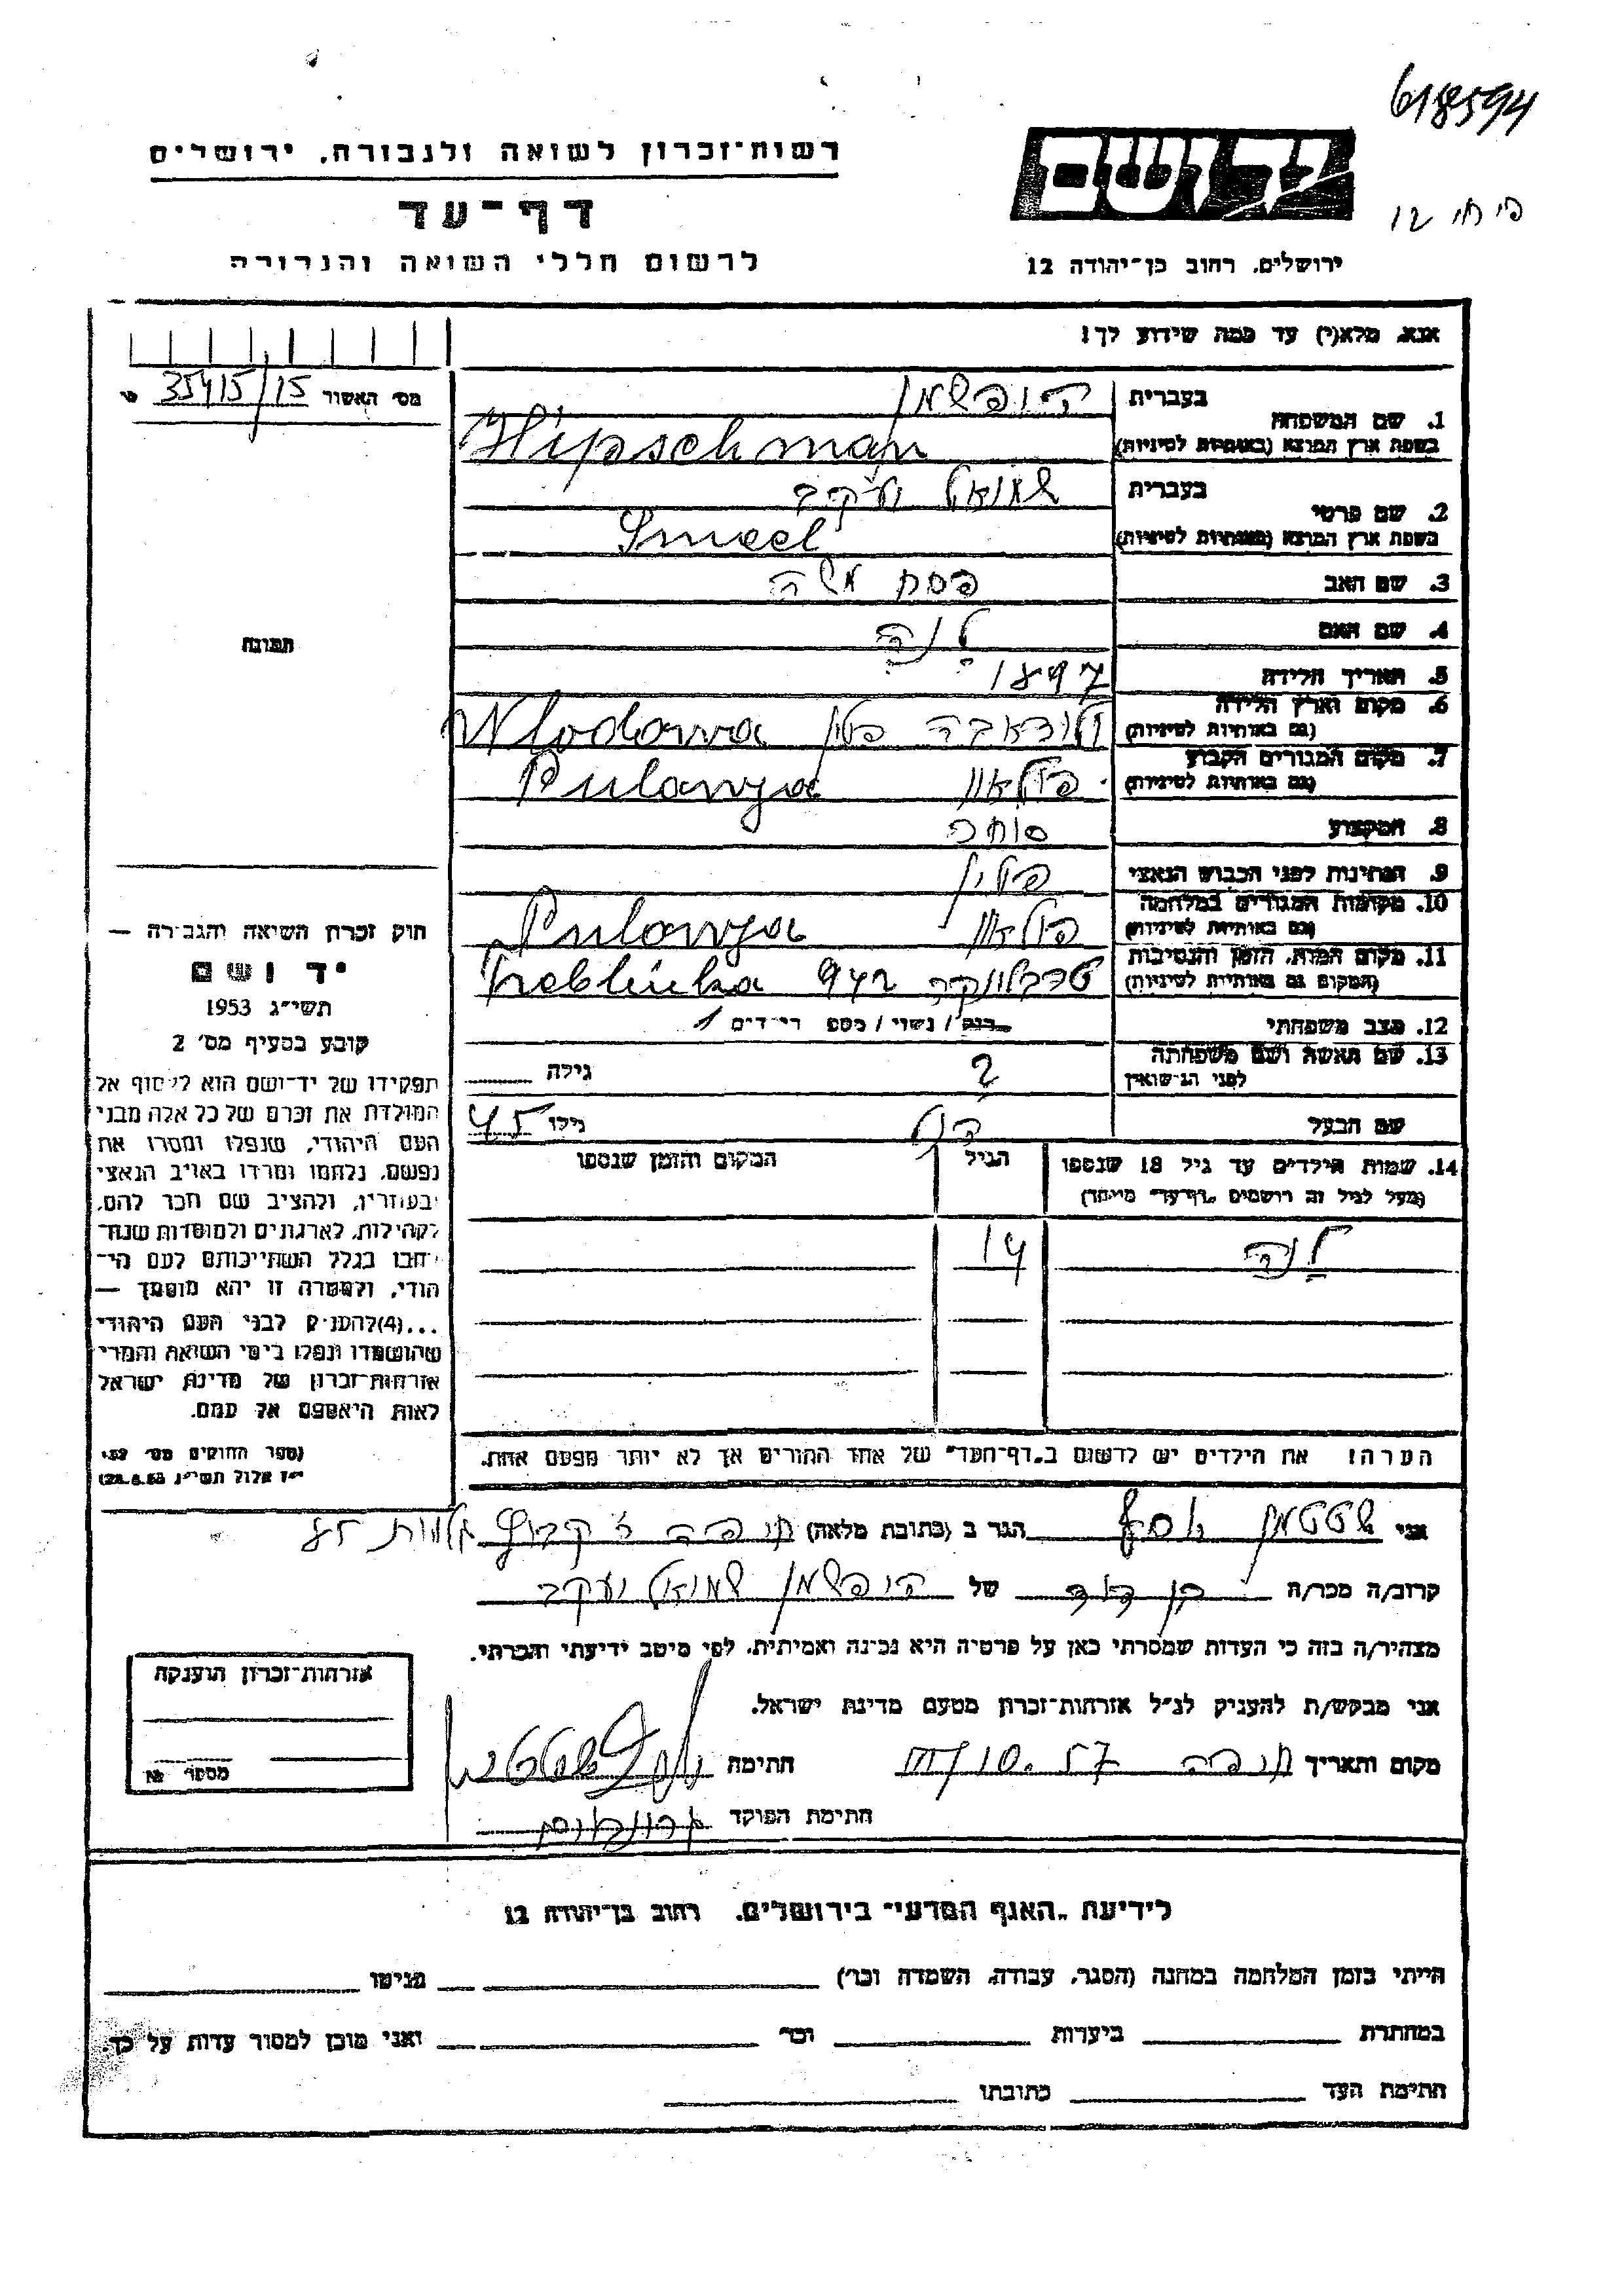 618594
רשות־זכרון לשואה ולגבורה, ירושלים
יד ושם
דף־עד
12
לרשום חללי השואה והגבורה
ירושלים, רחוב בן־יהודה 12
אנא, מלא(י) עד כמה שידוע לך!
מס׳ האשור 35415/15
1. שם המשפחה
בעברית היפשמן
בשפת ארץ המוצא (באותיות לטיניות) Hipschman
2. שם פרטי
בעברית שמואל יעקב
בשפת ארץ המוצא (באותיות לטיניות)
3. שם האב פסח משה
4. שם האם לנה
5. תאריך הלידה 1897
6. מקום וארץ הלידה
(גם באותיות לטיניות) פולין Wlodawa
7. מקום המגורים הקבוע
(גם באותיות לטיניות) Pulawya
8. המקצוע סוחר
9. הנתינות לפני הכבוש הנאצי פולין
10. מקומות המגורים במלחמה
(גם באותיות לטיניות) Pulawya
11. מקום המות, הזמן והנסיבות
(המקום גם באותיות לטיניות) טרבלינקה 942 Treblinka
12. מצב משפחתי רווק / נשוי / מספר ילדים 1
13. שם האשה ושם משפחתה
לפני הנישואין ? גילה
שם הבעל גילו 45
14. שמות הילדים עד גיל 18 שנספו
(מעל לגיל זה רושמים „דף־עד״ מיוחד)
הגיל
המקום והזמן שנספו
לנה 14
הערה! את הילדים יש לרשום ב„דף־העד״ של אחד ההורים אך לא יותר מפעם אחת.
תמונה
חוק זכרון השואה והגבורה —
יד ושם
תשי״ג 1953
קובע בסעיף מס׳ 2
תפקידו של יד־ושם הוא לאסוף אל
המולדת את זכרם של כל אלה מבני
העם היהודי, שנפלו ומסרו את
נפשם, נלחמו ומרדו באויב הנאצי
ובעוזריו, ולהציב שם וזכר להם,
לקהילות, לארגונים ולמוסדות שנח־
רבו בגלל השתייכותם לעם הי־
הודי, ולמטרה זו יהא מוסמך —
...(4) להעניק לבני העם היהודי
שהושמדו ונפלו בימי השואה והמרי
אזרחות־זכרון של מדינת ישראל
לאות היאספם אל עמם.
(ספר החוקים מס׳ 132,
י״ז אלול תשי״ג 28.8.53)
אני שטטמן יוסף הגר ב (כתובת מלאה) חיפה
קרוב/ה מכר/ה בן דוד של היפשמן שמואל יעקב
מצהיר/ה בזה כי העדות שמסרתי כאן על פרטיה היא נכונה ואמיתית, לפי מיטב ידיעתי והכרתי.
אני מבקש/ת להעניק לנ״ל אזרחות־זכרון מטעם מדינת ישראל.
מקום ותאריך חיפה חתימה
חתימת הפוקד
אזרחות־זכרון הוענקה
מספר №
לידיעת „האגף המדעי״ בירושלים, רחוב בן־יהודה 12
הייתי בזמן המלחמה במחנה (הסגר, עבודה, השמדה וכו׳) בגיטו
במחתרת ביערות וכו׳ ואני מוכן למסור עדות על כך.
חתימת העד כתובתו